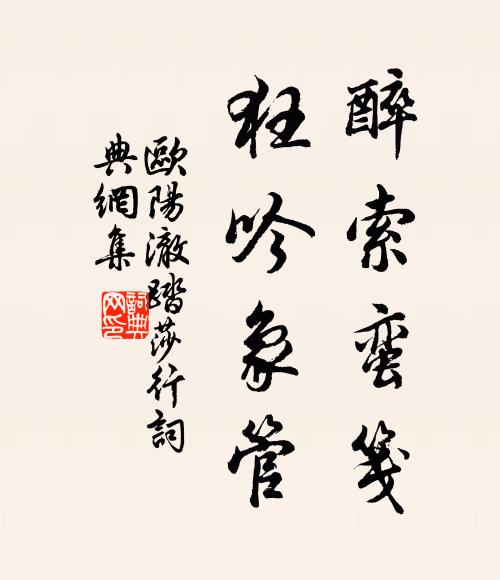 醉索蛮笺
狂吟象管
歐陽澈踏莎行詞
典網集
詞典网印